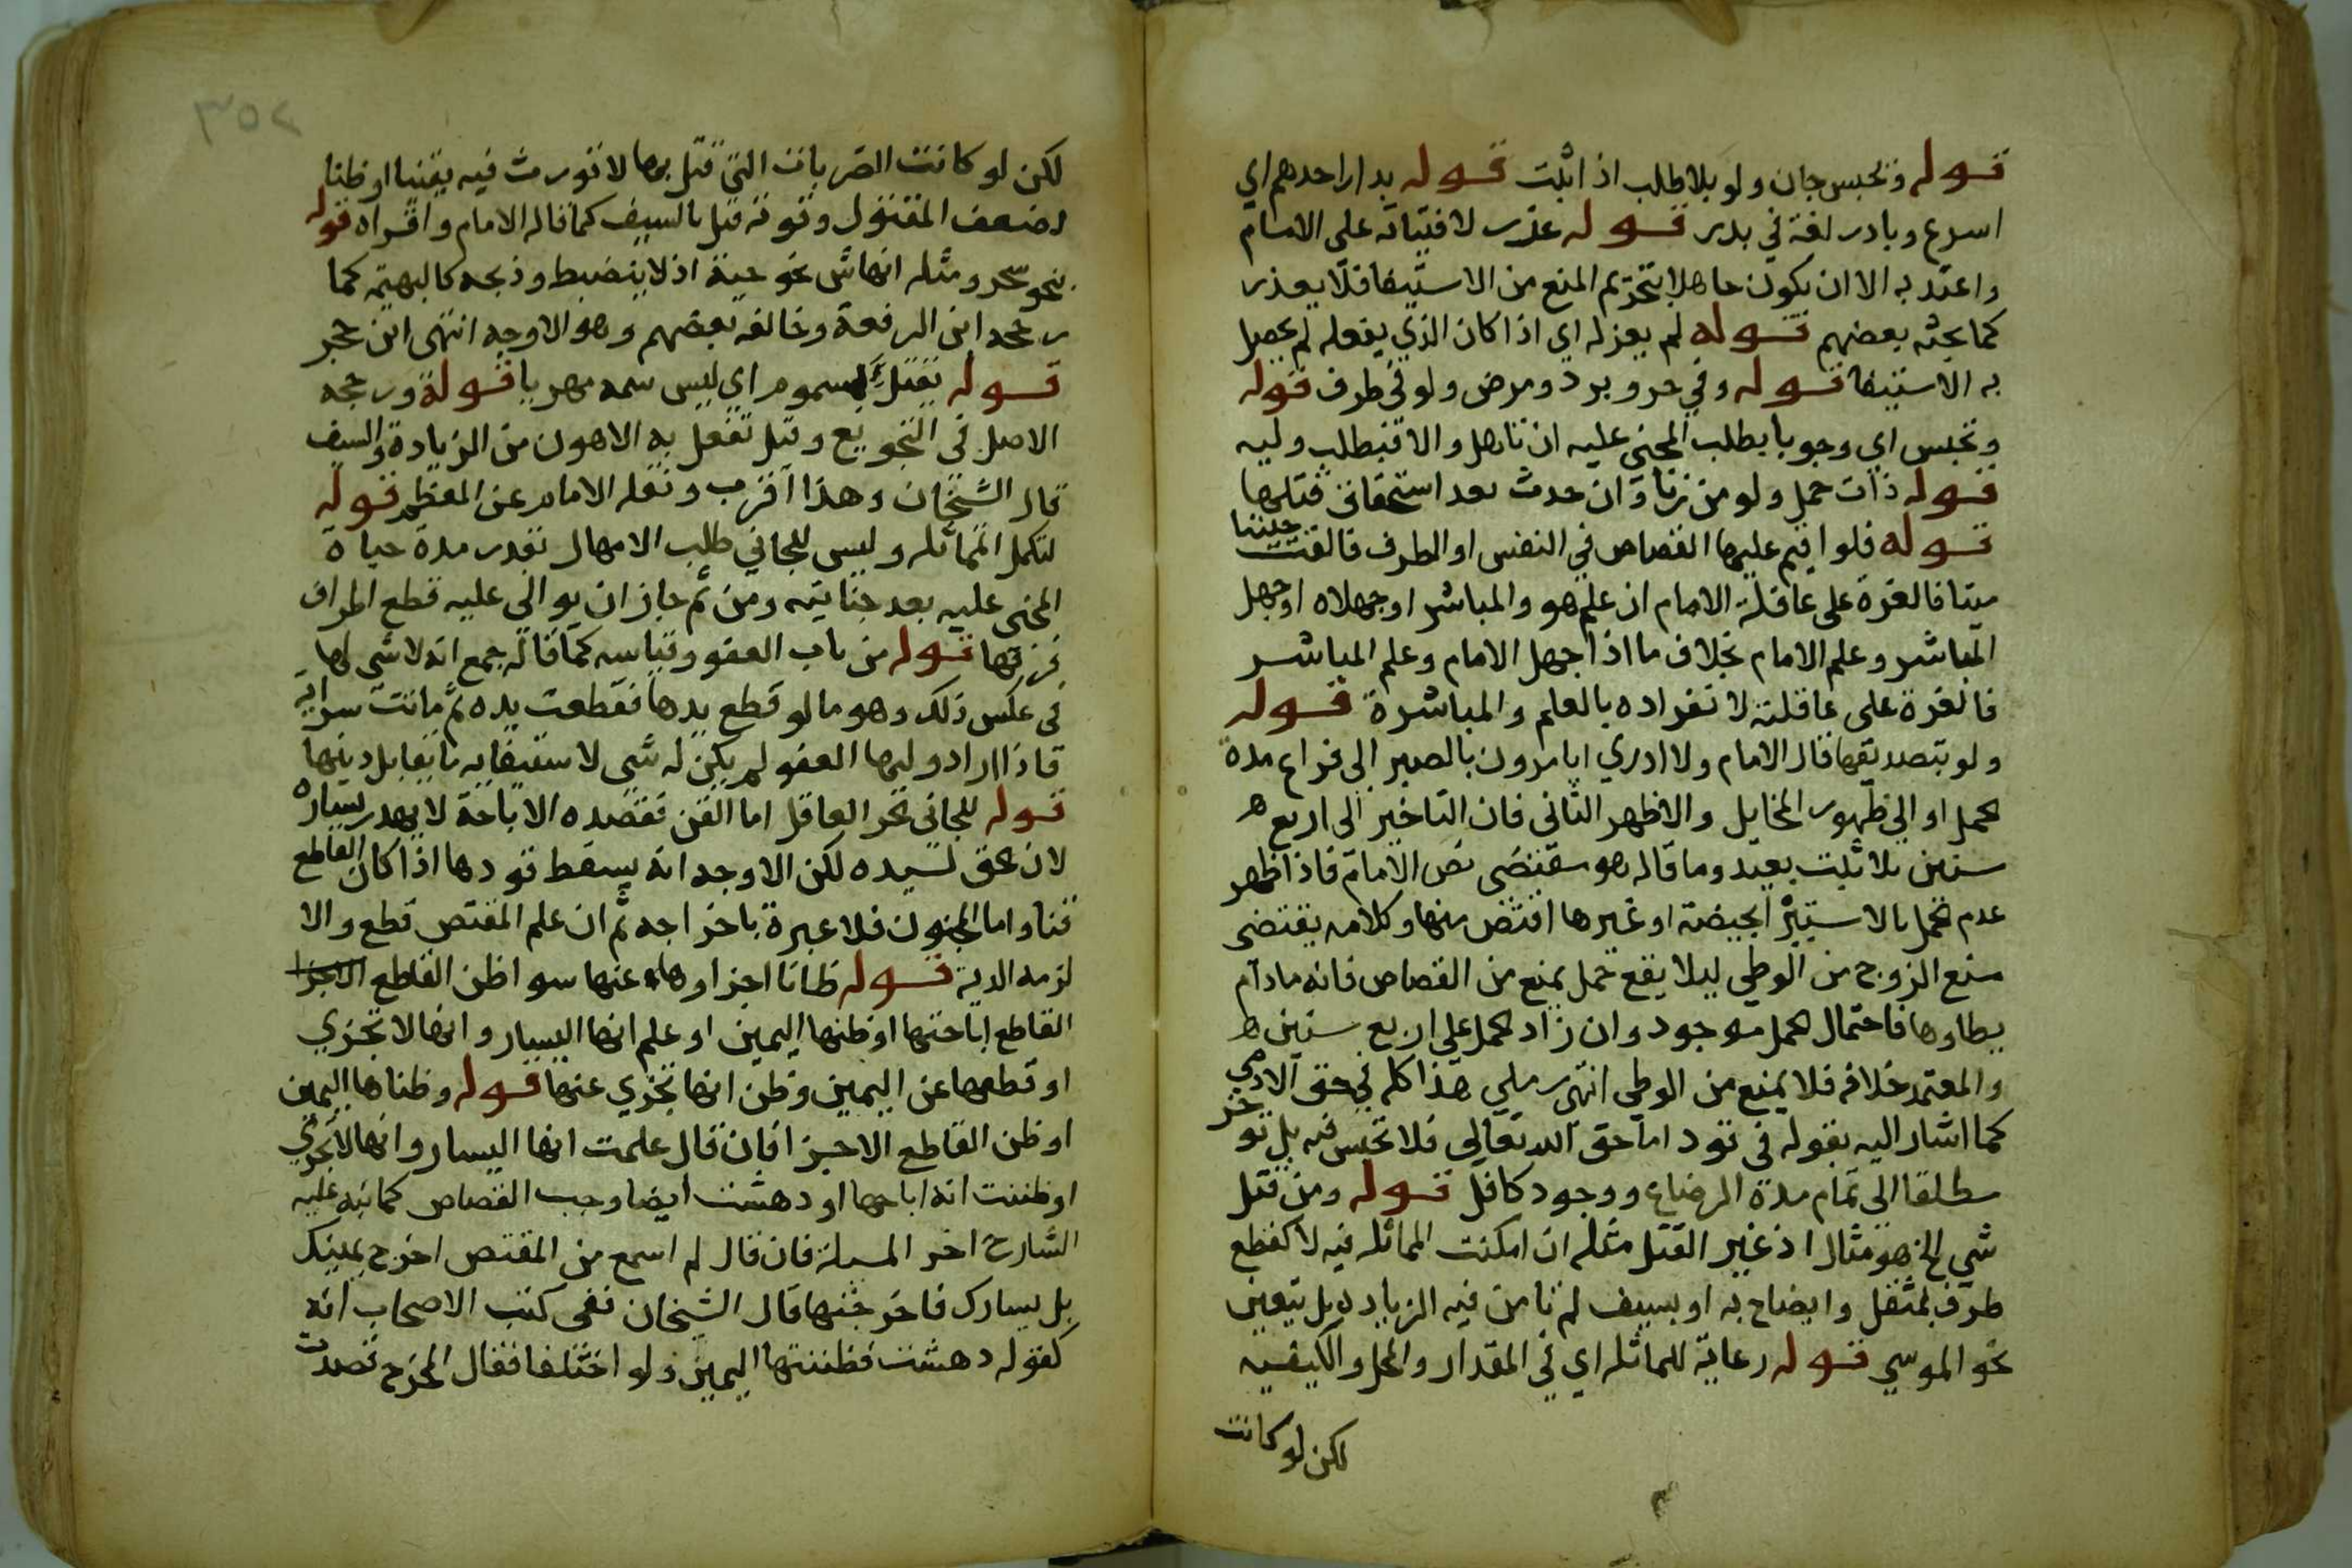 قوله وتحبس جان ولو بلا طلب اذا ثبت قوله بدار احدهم اي
اسرع وبادر لغة في بدر قوله عزر لافتياته على الامام
واعتد به الا ان يكون جاهلا بتحريم المنع من الاستيفا فلا يعذر
كما بحثه بعضهم قوله لم يعزله اي اذا كان الذي يفعله لم يحصل
به الاستيفا قوله وفي حر وبرد ومرض ولو في طرف قوله
وتحبس اي وجوبا بطلب المجني عليه ان تاهل والا فبطلب وليه
قوله ذات حمل ولو من زنا وان حدث بعد استحقاق قتلها
قوله فلو اقيم عليها القصاص في النفس او الطرف فالقت جنينا
ميتا فالغرة على عاقلة الامام ان علم هو والمباشر او جهلاه او جهل
المباشر وعلم الامام بخلاف ما اذا جهل الامام وعلم المباشر
فالغرة على عاقلته لانفراده بالعلم والمباشرة قوله
ولو بتصديقها قال الامام ولا ادري ايامرون بالصبر الى فراع مدة
الحمل او الى ظهور المخايل والاظهر الثاني فان التاخير الى اربع
سنين بلا ثبت بعيد وما قاله هو مقتضى نص الام فاذا ظهر
عدم الحمل بالاستبرا بحيضة او غيرها اقتص منها وكلامه يقتضي
منع الزوج من الوطي ليلا يقع حمل يمنع من القصاص فانه مادام
يطاوها فاحتمال الحمل موجود وان زاد الحمل على اربع سنين
والمعتمد خلافه فلا يمنع من الوطي انتهى رملي هذا كله في حق الادمي
كما اشار اليه بقوله في قود اما حق الله تعالى فلا تحبس فيه بل توخر
مطلقا الى تمام مدة الرضاع ووجود كافل قوله ومن قتل
شي الخ هو مثال اذ غير القتل مثله ان امكنت المماثله فيه لا كقطع
طرف بمثقل وايضاح به او بسيف لم نامن فيه الزيادة بل يتعين
نحو الموسي قوله رعاية للمماثله اي في المقدار والمحل والكيفيه
لكن لو كانت
٣٥٢
لكن لو كانت الضربات التي قتل بها لا تورث فيه يقينا او ظنا
لضعف المقتول وقوته قتل بالسيف كما قاله الامام واقراه قوله
بنحو سحر ومثله انهاش نحو حية اذ لا ينضبط وذبحه كالبهيمه كما
رجحه ابن الرفعة وخالفه بعضهم وهو الاوجه انتهى ابن حجر
قوله بمسموم اي ليس سمه مهريا قوله ورجحه
الاصل في التجويع وقيل تفعل به الاهون من الزيادة والسيف
قال الشيخان وهذا اقرب ونقله الامام عن المعظم قوله
لتكمل المماثله وليس للجاني طلب الامهال بقدر مدة حياة
المجني عليه بعد جنايته ومن ثم جاز ان يوالى عليه قطع اطراف
فرقها قوله من باب العفو وقياسه كما قاله جمع انه لا شي لها
في عكس ذلك وهو ما لو قطع يدها فقطعت يده ثم ماتت سراية
فاذا اراد وليها العفو لم يكن له شي لاستيفايه ما يقابل ديتها
قوله للجاني الحر العاقل اما القن فقصده الاباحة لا يهدر يساره
لان الحق لسيده لكن الاوجه انه يسقط قودها اذا كان القاطع
قنا واما المجنون فلا عبرة باخراجه ثم ان علم المقتص قطع والا
لزمه الدية قوله ظانا اجزاوها عنها سوا ظن القاطع
القاطع اباحتها او ظنها اليمين او علم انها اليسار وانها لا تجزي
او قطعها عن اليمين وظن انها تجزي عنها قوله وظناها اليمين
او ظن القاطع الاجزا فان قال علمت انها اليسار وانها لا تجزي
او ظننت انه اباحها او دهشت ايضا وجب القصاص كما نبه عليه
الشارح اخر المسلة فان قال لم اسمع من المقتص اخرج يمينك
بل يسارك فاخرجتها قال الشيخان ففي كتب الاصحاب انه
كقوله دهشت فظننتها اليمين ولو اختلفا فقال المخرج قصدت